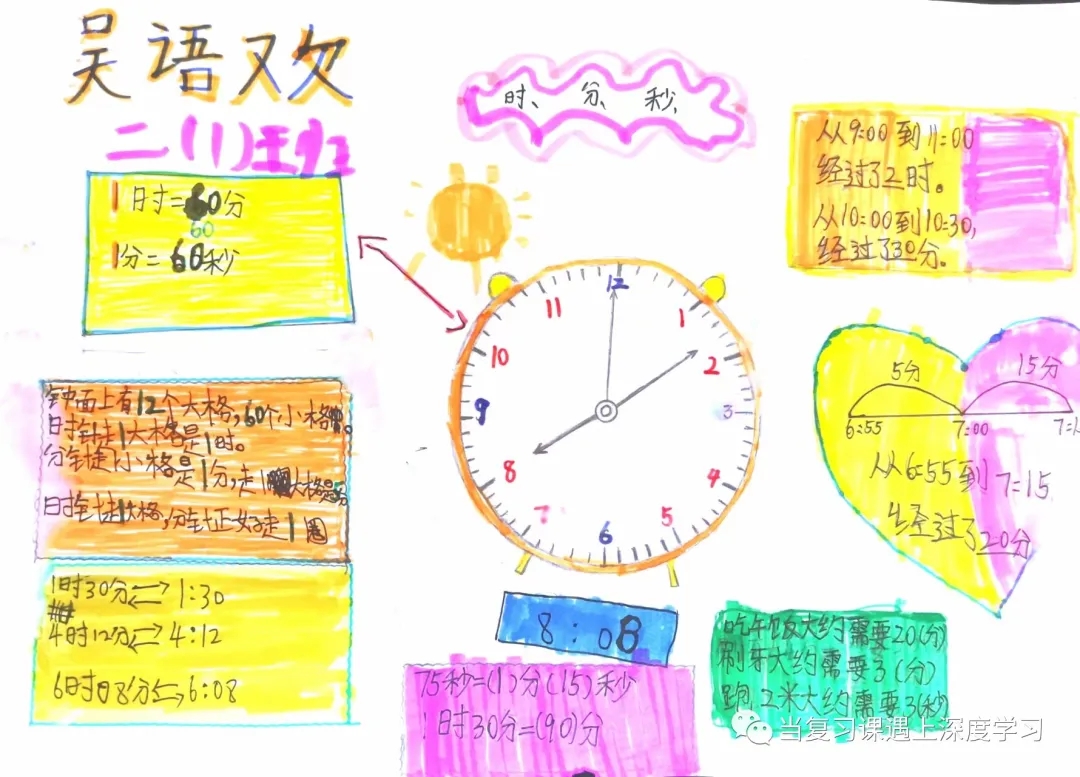 吴语欢
二(1)班
时、分、秒
1时=60分
60
1分=60秒
从9:00到11:00
经过了2时。
从10:00到10:30,
经过了30分。
12
1
2
3
4
5
6
7
8
9
10
11
5分
15分
6:55
7:00
从6:55到7:15
经过了20分
钟面上有12个大格,60个小格。
时针走1大格是1时。
分针走1小格是1分,走1大格是5分
时针走1大格,分针正好走1圈
1时30分⇌1:30
4时12分⇌4:12
6时08分⇌6:08
8:08
75秒=(1)分(15)秒
1时30分=(90)分
吃午饭大约需要20(分)
刷牙大约需要3(分)
跑2米大约需要3(秒
当复习课遇上深度学习